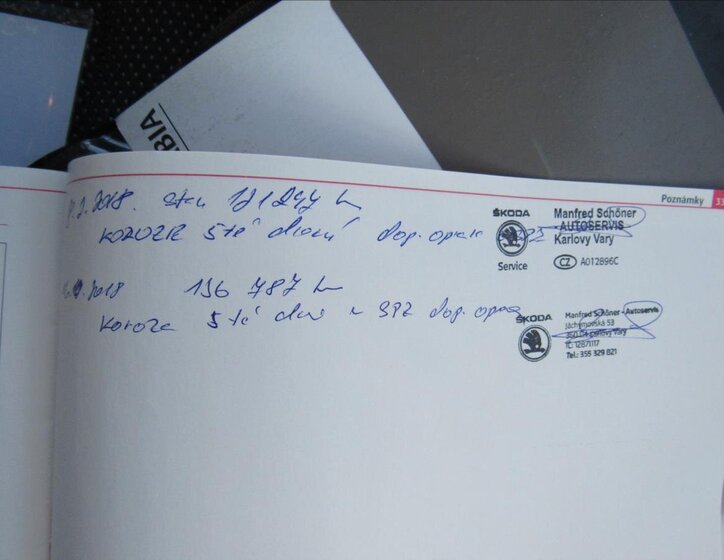 BIA
Poznámky 33
2.2018. stav 121244 km
KOROZE 5té dveří dop. oprav
ŠKODA
Service
Manfred Schöner
AUTOSERVIS
Karlovy Vary
CZ A012896C
2018 136 787 km
Koroze 5té dveří u SPZ dop. oprav
ŠKODA
Manfred Schöner - Autoservis
Jáchymovská 53
Karlovy Vary
IČ: 12871117
Tel.: 355 329 821